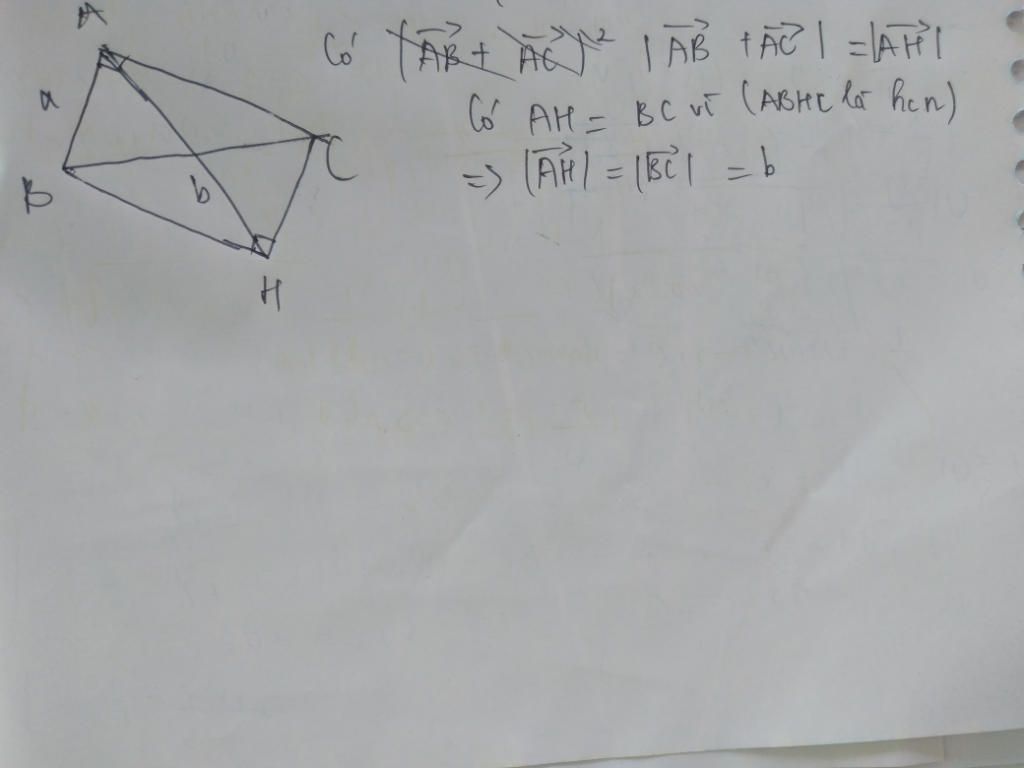 A
a
B
b
C
H
Có (AB→ + AC→)² |AB→ + AC→| = |AH→|
Có AH = BC vì (ABHC là hcn)
=> |AH→| = |BC→| = b